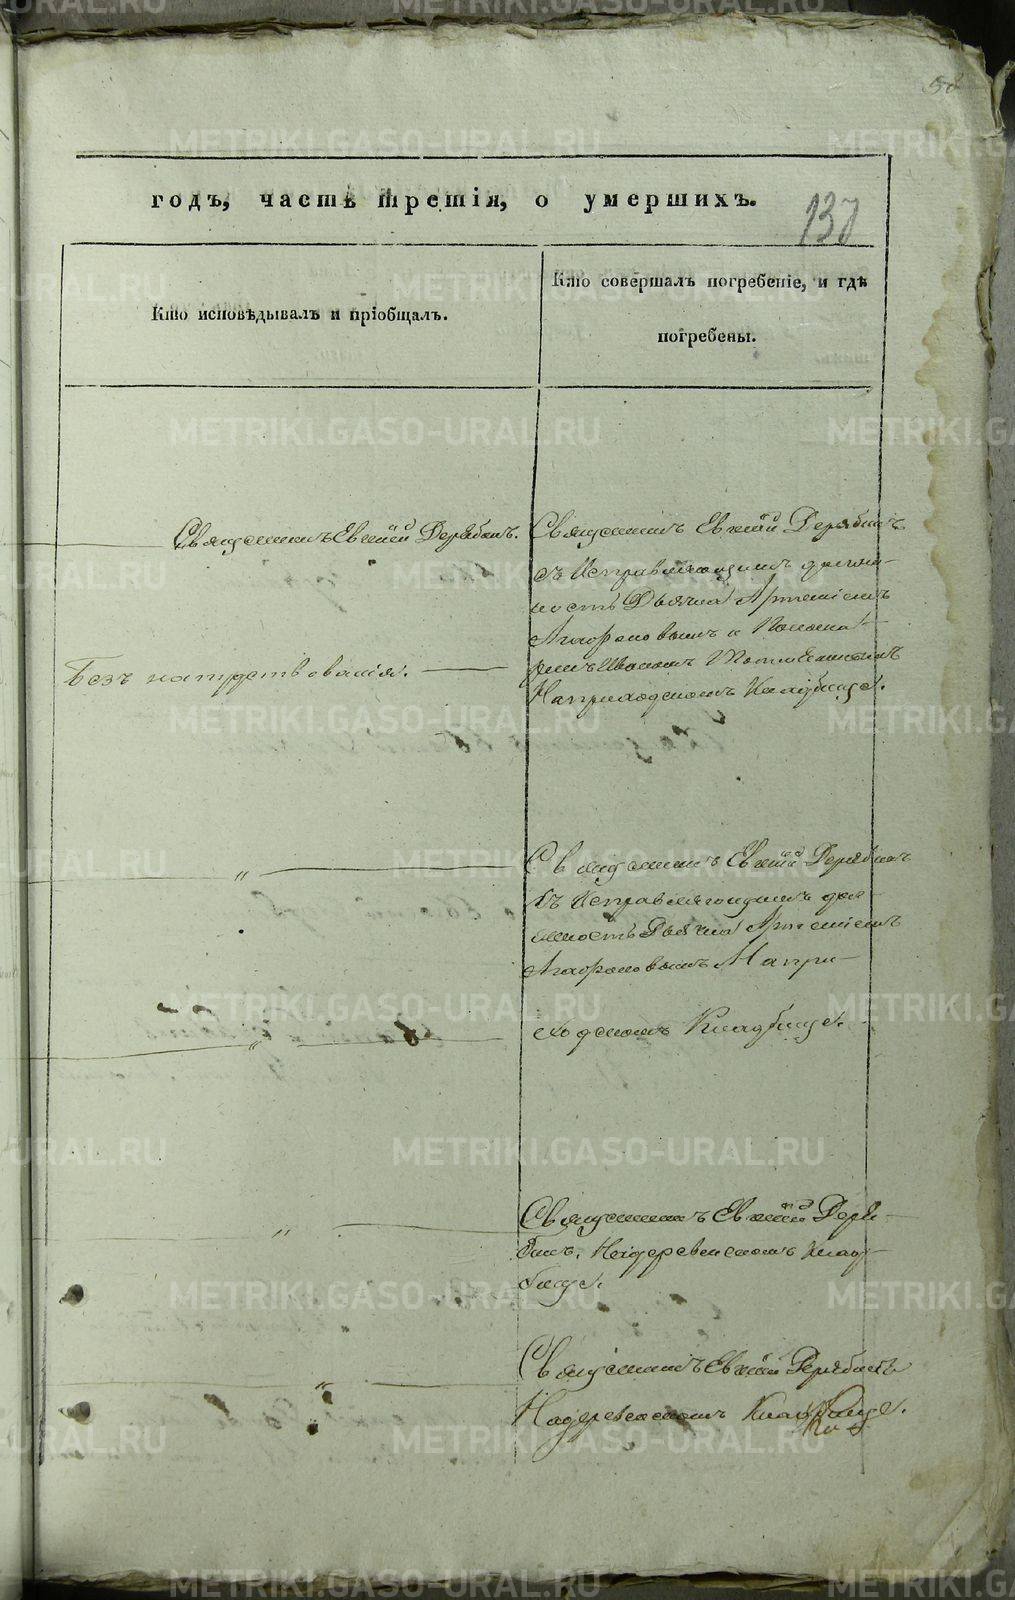 58
годъ, часть третія, о умершихъ.
137
Кто исповѣдывалъ и пріобщалъ.
Кто совершалъ погребеніе, и гдѣ
погребены.
Священникъ Евѳимій Дерябинъ.
Священникъ Евѳимій Дерябинъ
съ Исправляющимъ должн-
ность Дьячка Артеміемъ
Агафоновымъ и Понома-
ремъ Иваномъ
На приходскомъ Кладбищѣ.
Безъ напутствованія.
Священникъ Евѳимій Дерябинъ
съ Исправляющимъ дол-
жность Дьячка Артеміемъ
Агафоновымъ На при-
ходскомъ Кладбищѣ.
Священникъ Евѳимій Деря-
бинъ. На деревенскомъ Клад-
бищѣ.
Священникъ Евѳимій Дерябинъ
На деревенскомъ Кладбищѣ.
METRIKI.GASO-URAL.RU